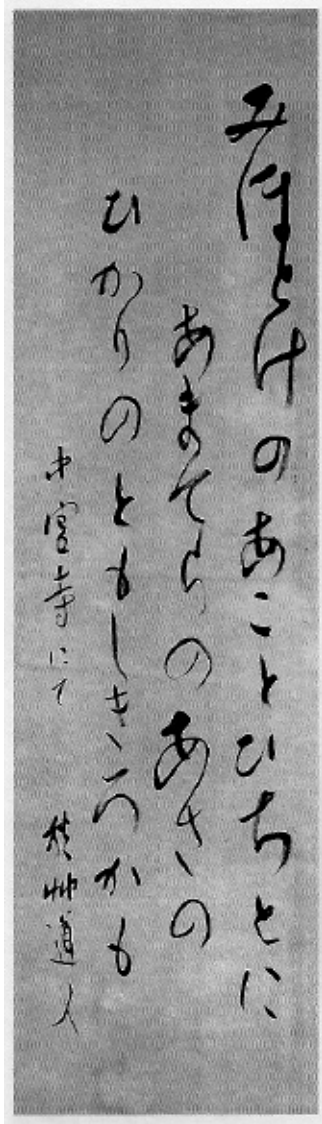 みほとけのあことひちとに
あまてらのあさの
ひかりのともしきろかも
中宮寺にて 秋艸道人